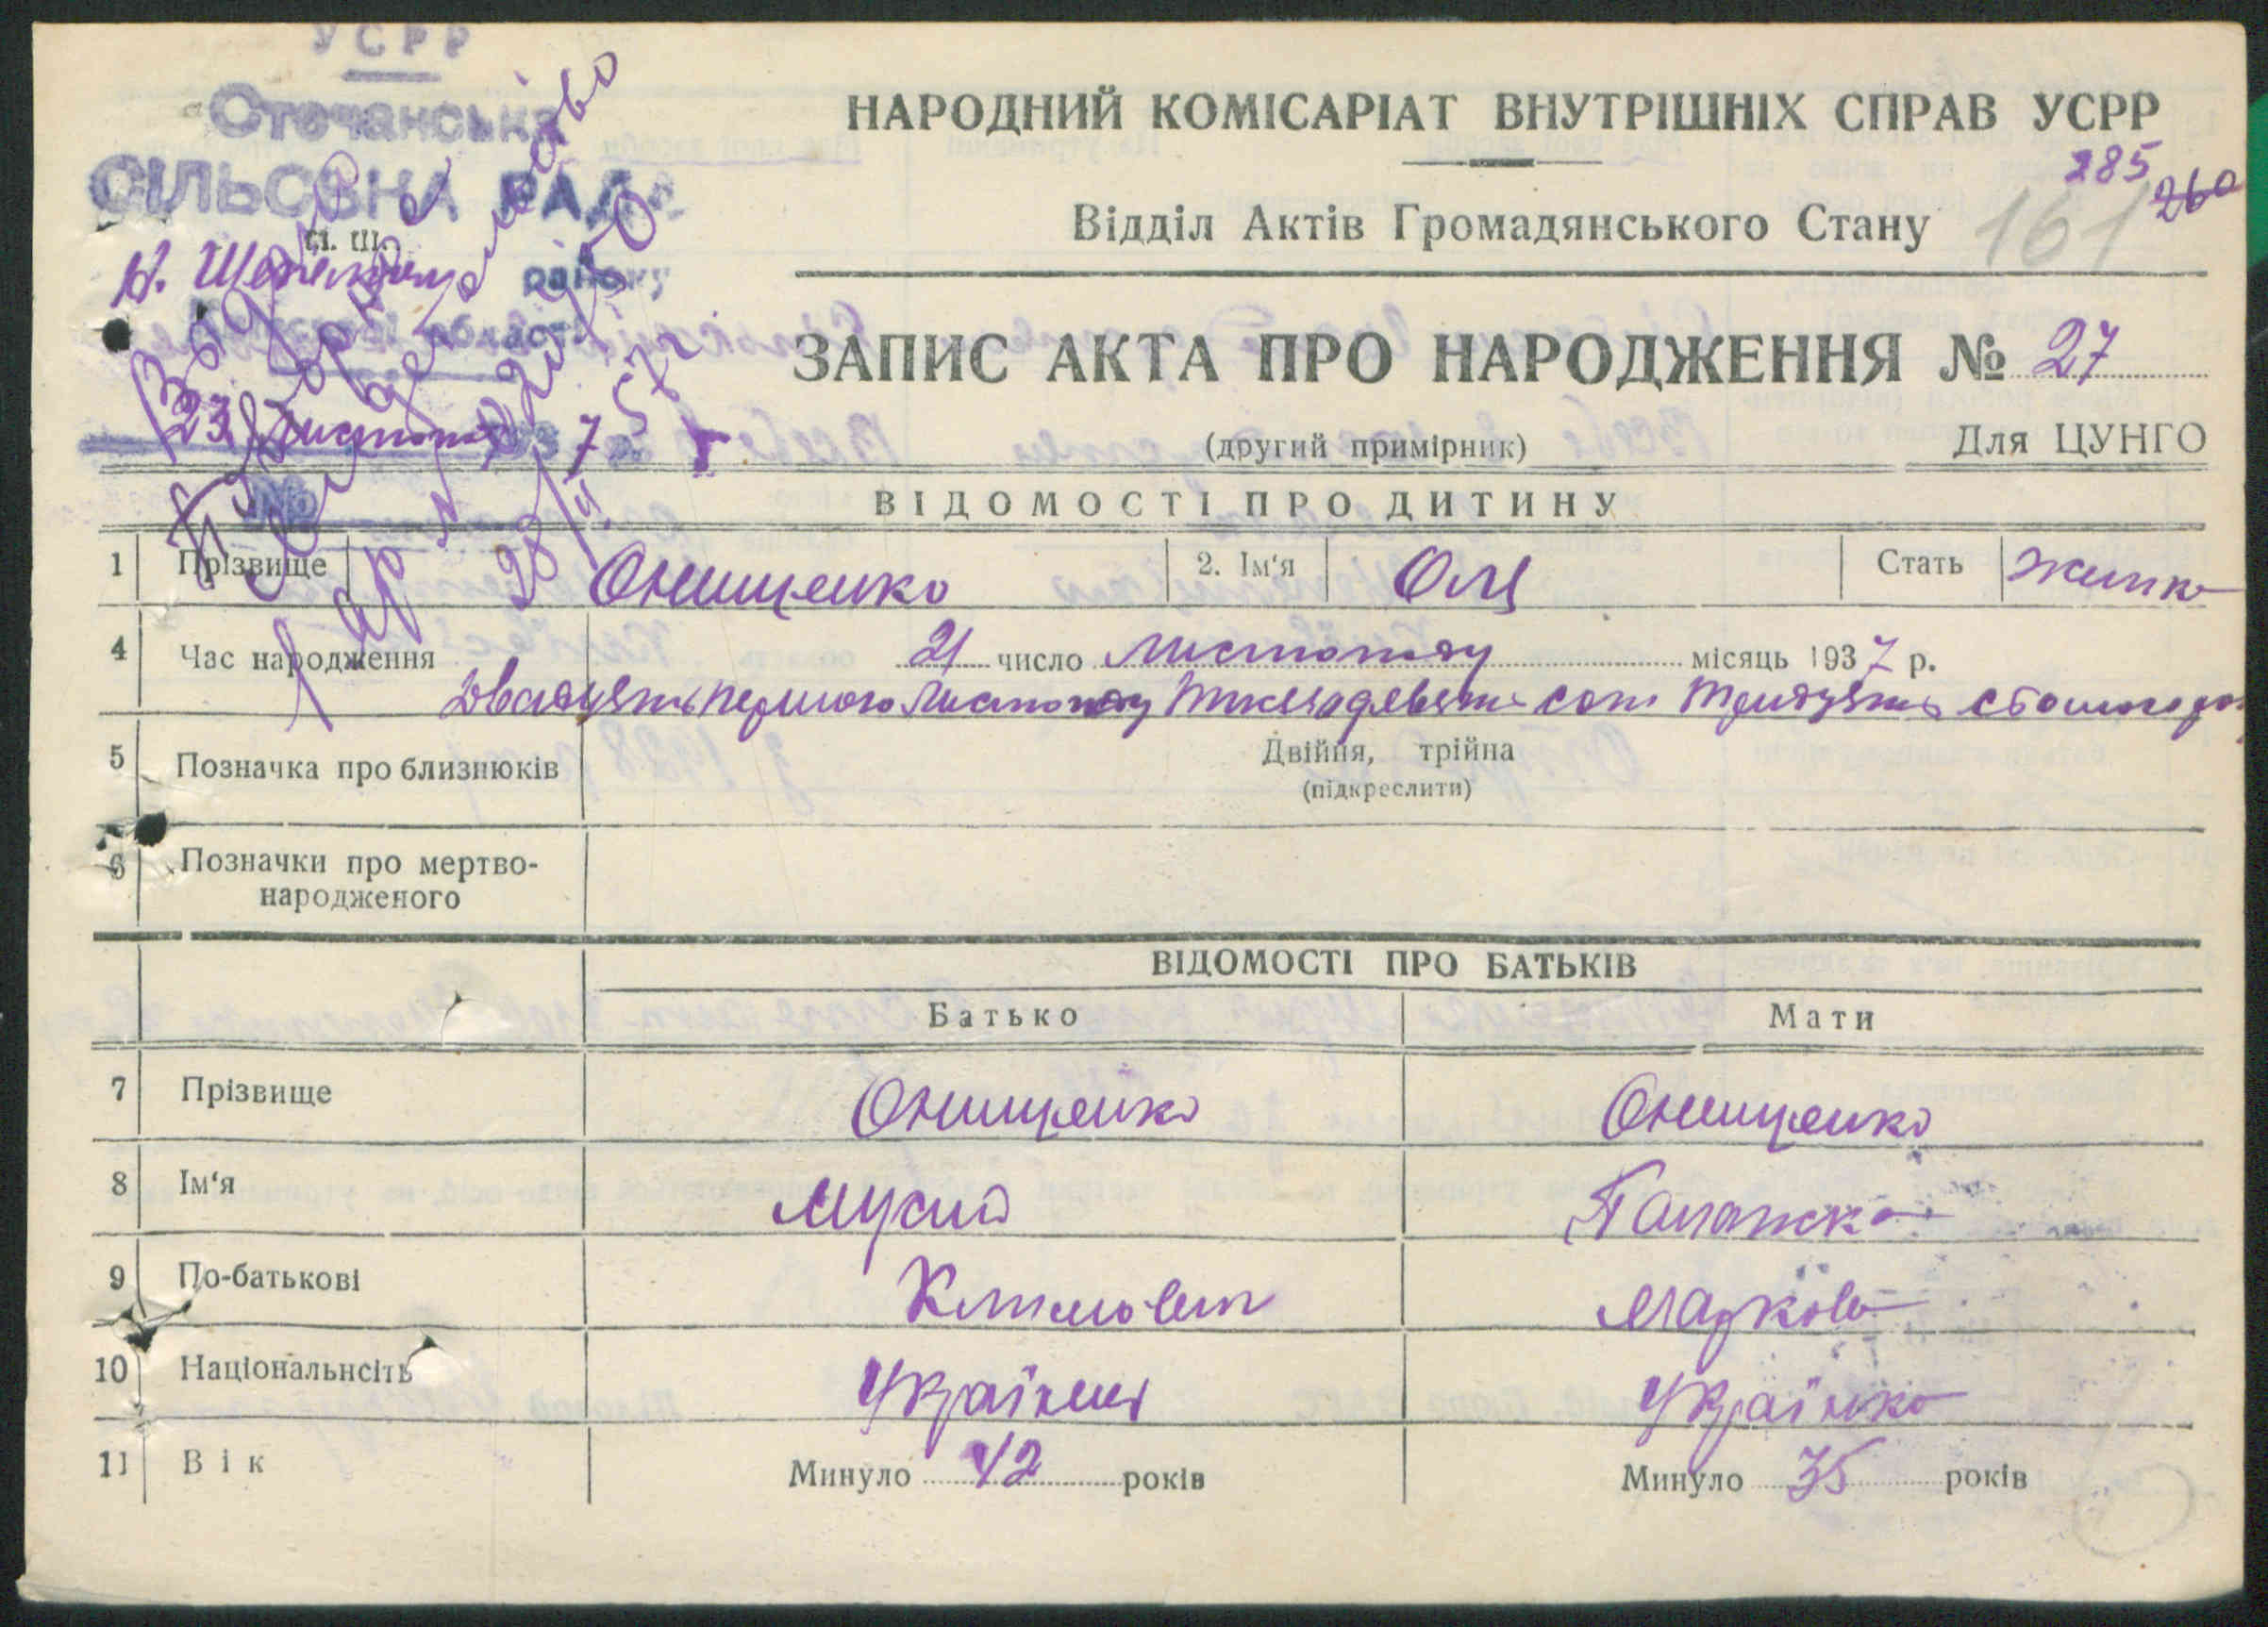 УСРР
Стечанська
СІЛЬСЬКА РАДА
П. Ш.
району
області
23 листопада 193 7 р.
№
НАРОДНИЙ КОМІСАРІАТ ВНУТРІШНІХ СПРАВ УСРР
285
260
Відділ Актів Громадянського Стану
161
ЗАПИС АКТА ПРО НАРОДЖЕННЯ № 27
(другий примірник)
Для ЦУНГО
ВІДОМОСТІ ПРО ДИТИНУ
1 Прізвище Онищенко 2. Ім'я Оля Стать жінка
4 Час народження 21 число листопаду місяць 1937 р.
Двадцять першого листопаду тисяча девять сот тридцять сьомого
5 Позначка про близнюків Двійня, трійна
(підкреслити)
6 Позначки про мертво-
народженого
ВІДОМОСТІ ПРО БАТЬКІВ
Батько Мати
7 Прізвище Онищенко Онищенко
8 Ім'я Мусій Палажка
9 По-батькові Климович Маркова
10 Національнсіть Українець Українка
11 Вік Минуло 42 років Минуло 35 років